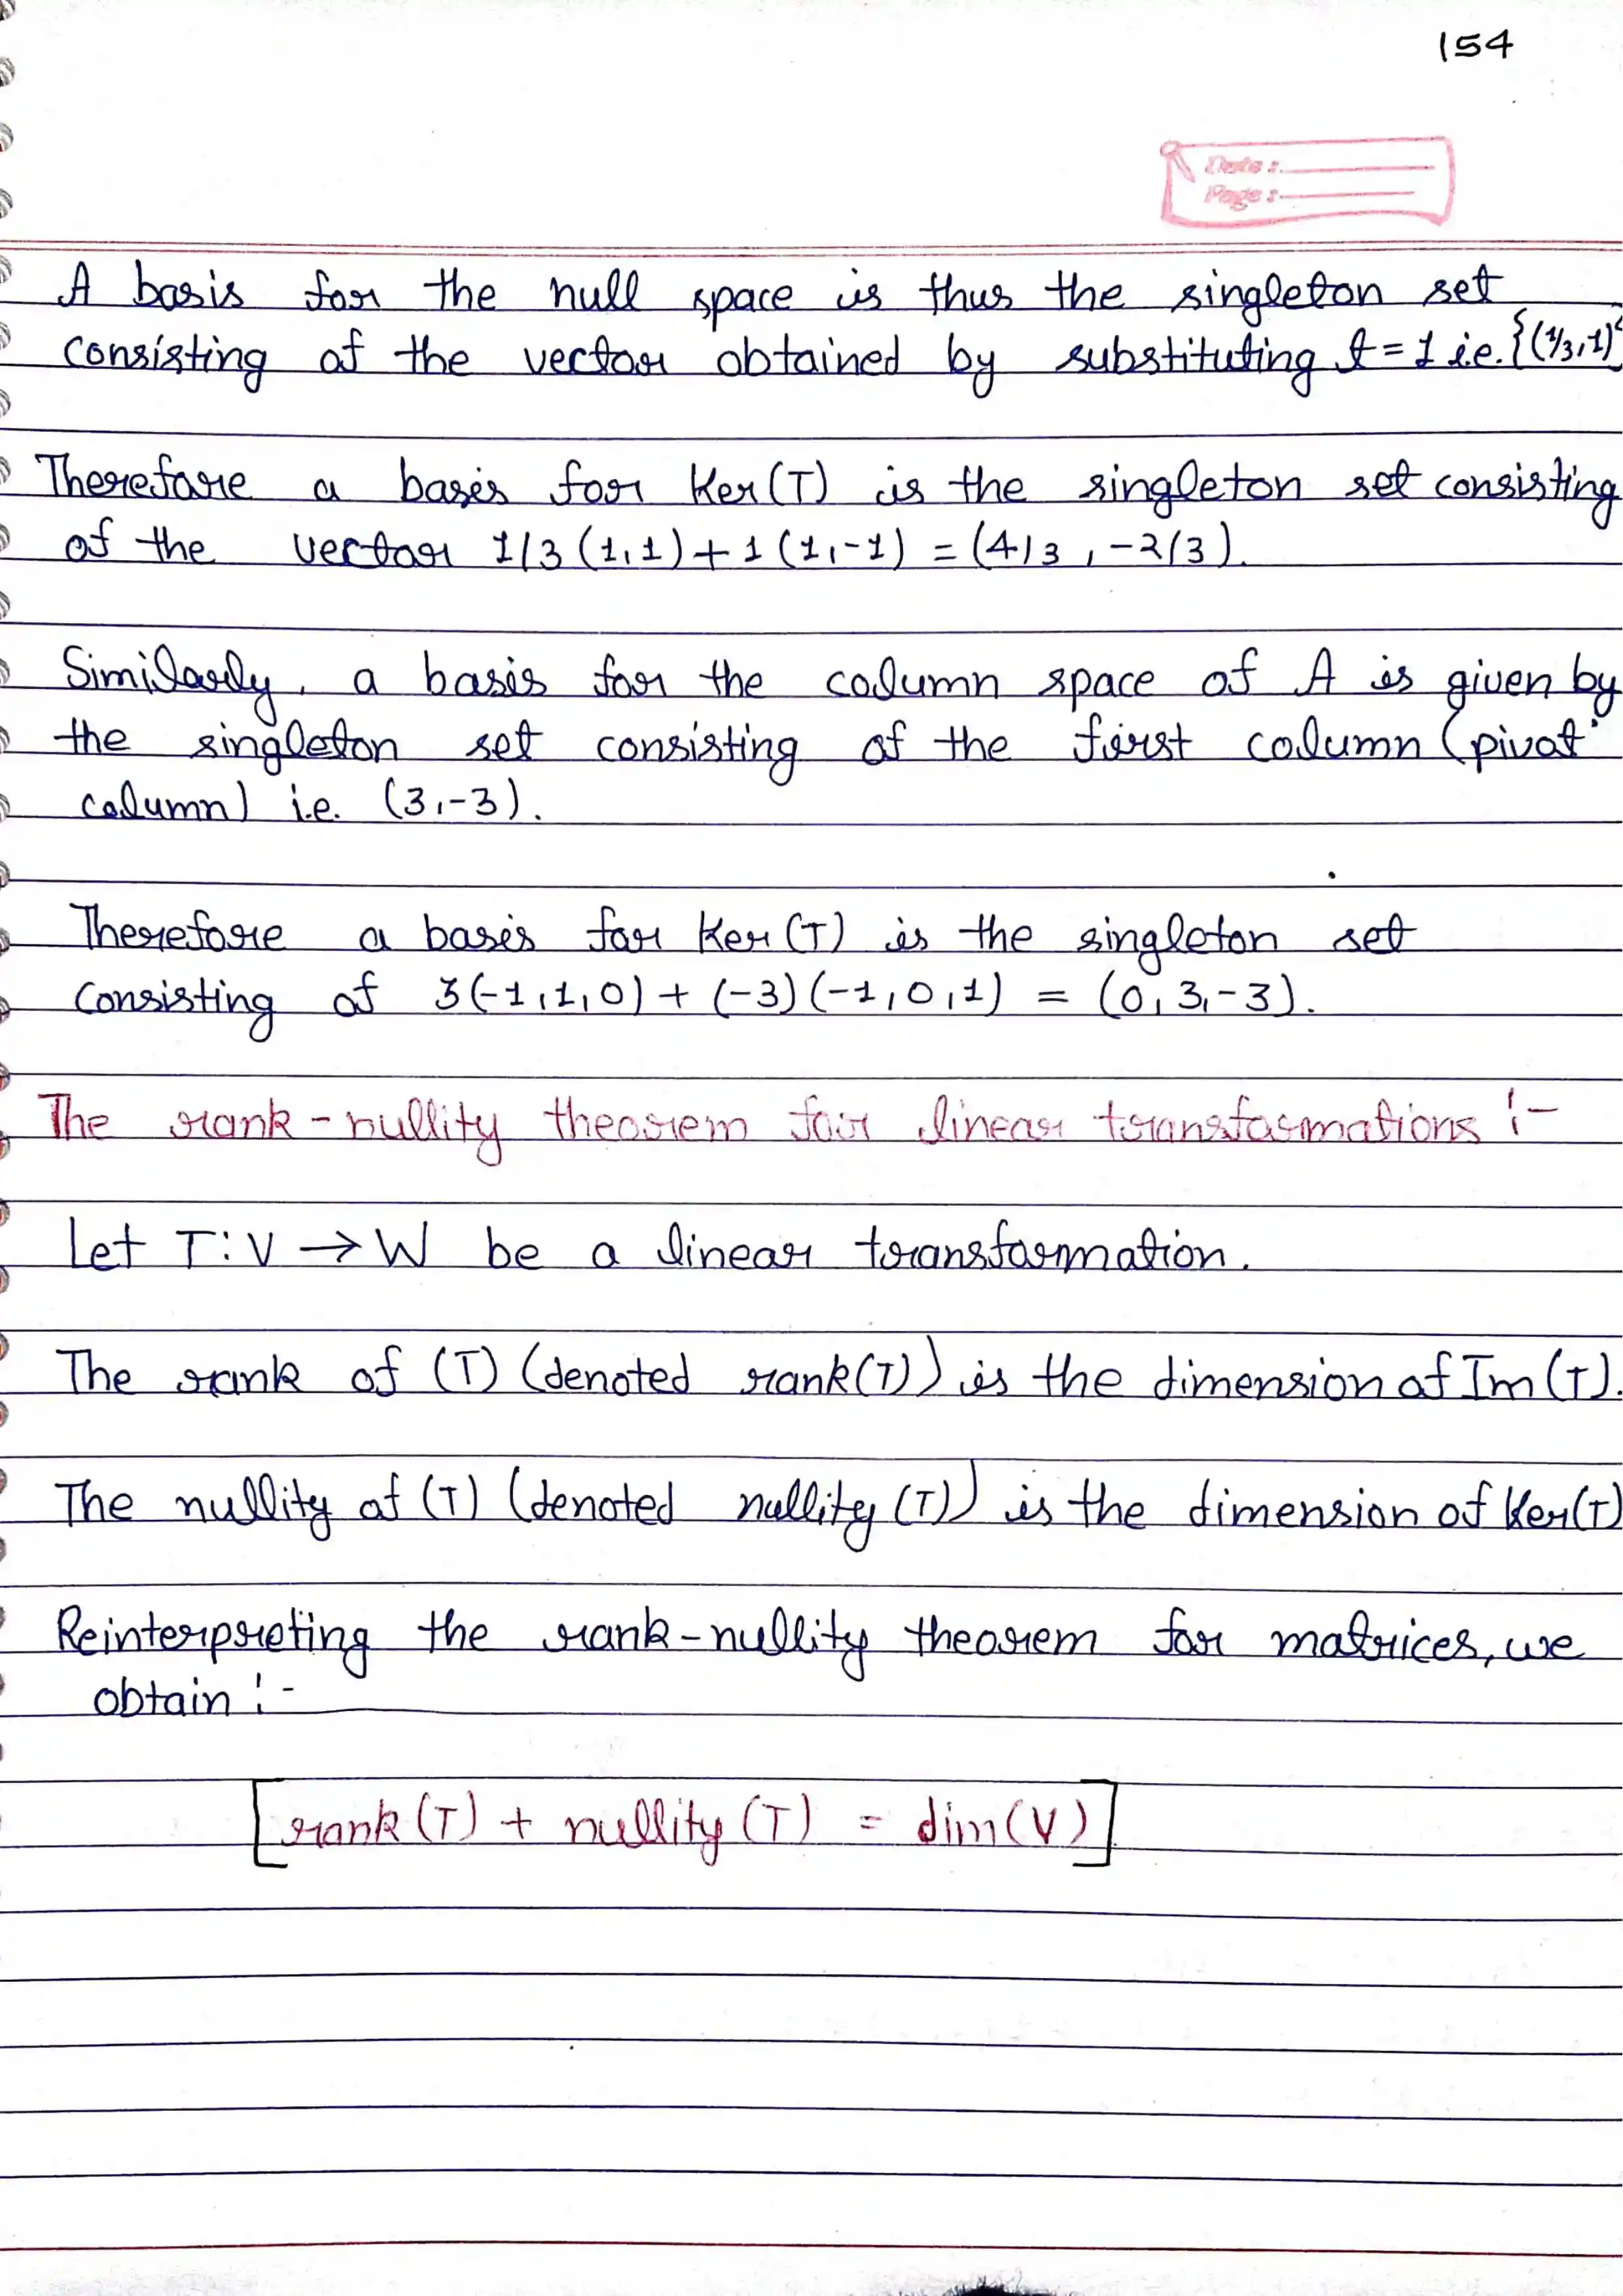 154
Date :
Page :
A basis for the null space is thus the singleton set
consisting of the vector obtained by substituting t = 1 i.e. {(1/3, 1)
Therefore a basis for Ker(T) is the singleton set consisting
of the vector 1/3 (1,1) + 1 (1,-1) = (4/3, -2/3).
Similarly, a basis for the column space of A is given by
the singleton set consisting of the first column (pivot
column) i.e. (3,-3).
Therefore a basis for Ker (T) is the singleton set
consisting of 3(-1,1,0) + (-3)(-1,0,1) = (0,3,-3).
The rank-nullity theorem for linear transformations :-
Let T:V → W be a linear transformation.
The rank of (T) (denoted rank(T)) is the dimension of Im(T).
The nullity of (T) (denoted nullity (T)) is the dimension of Ker(T)
Reinterpreting the rank-nullity theorem for matrices, we
obtain :-
[rank (T) + nullity (T) = dim(V)]